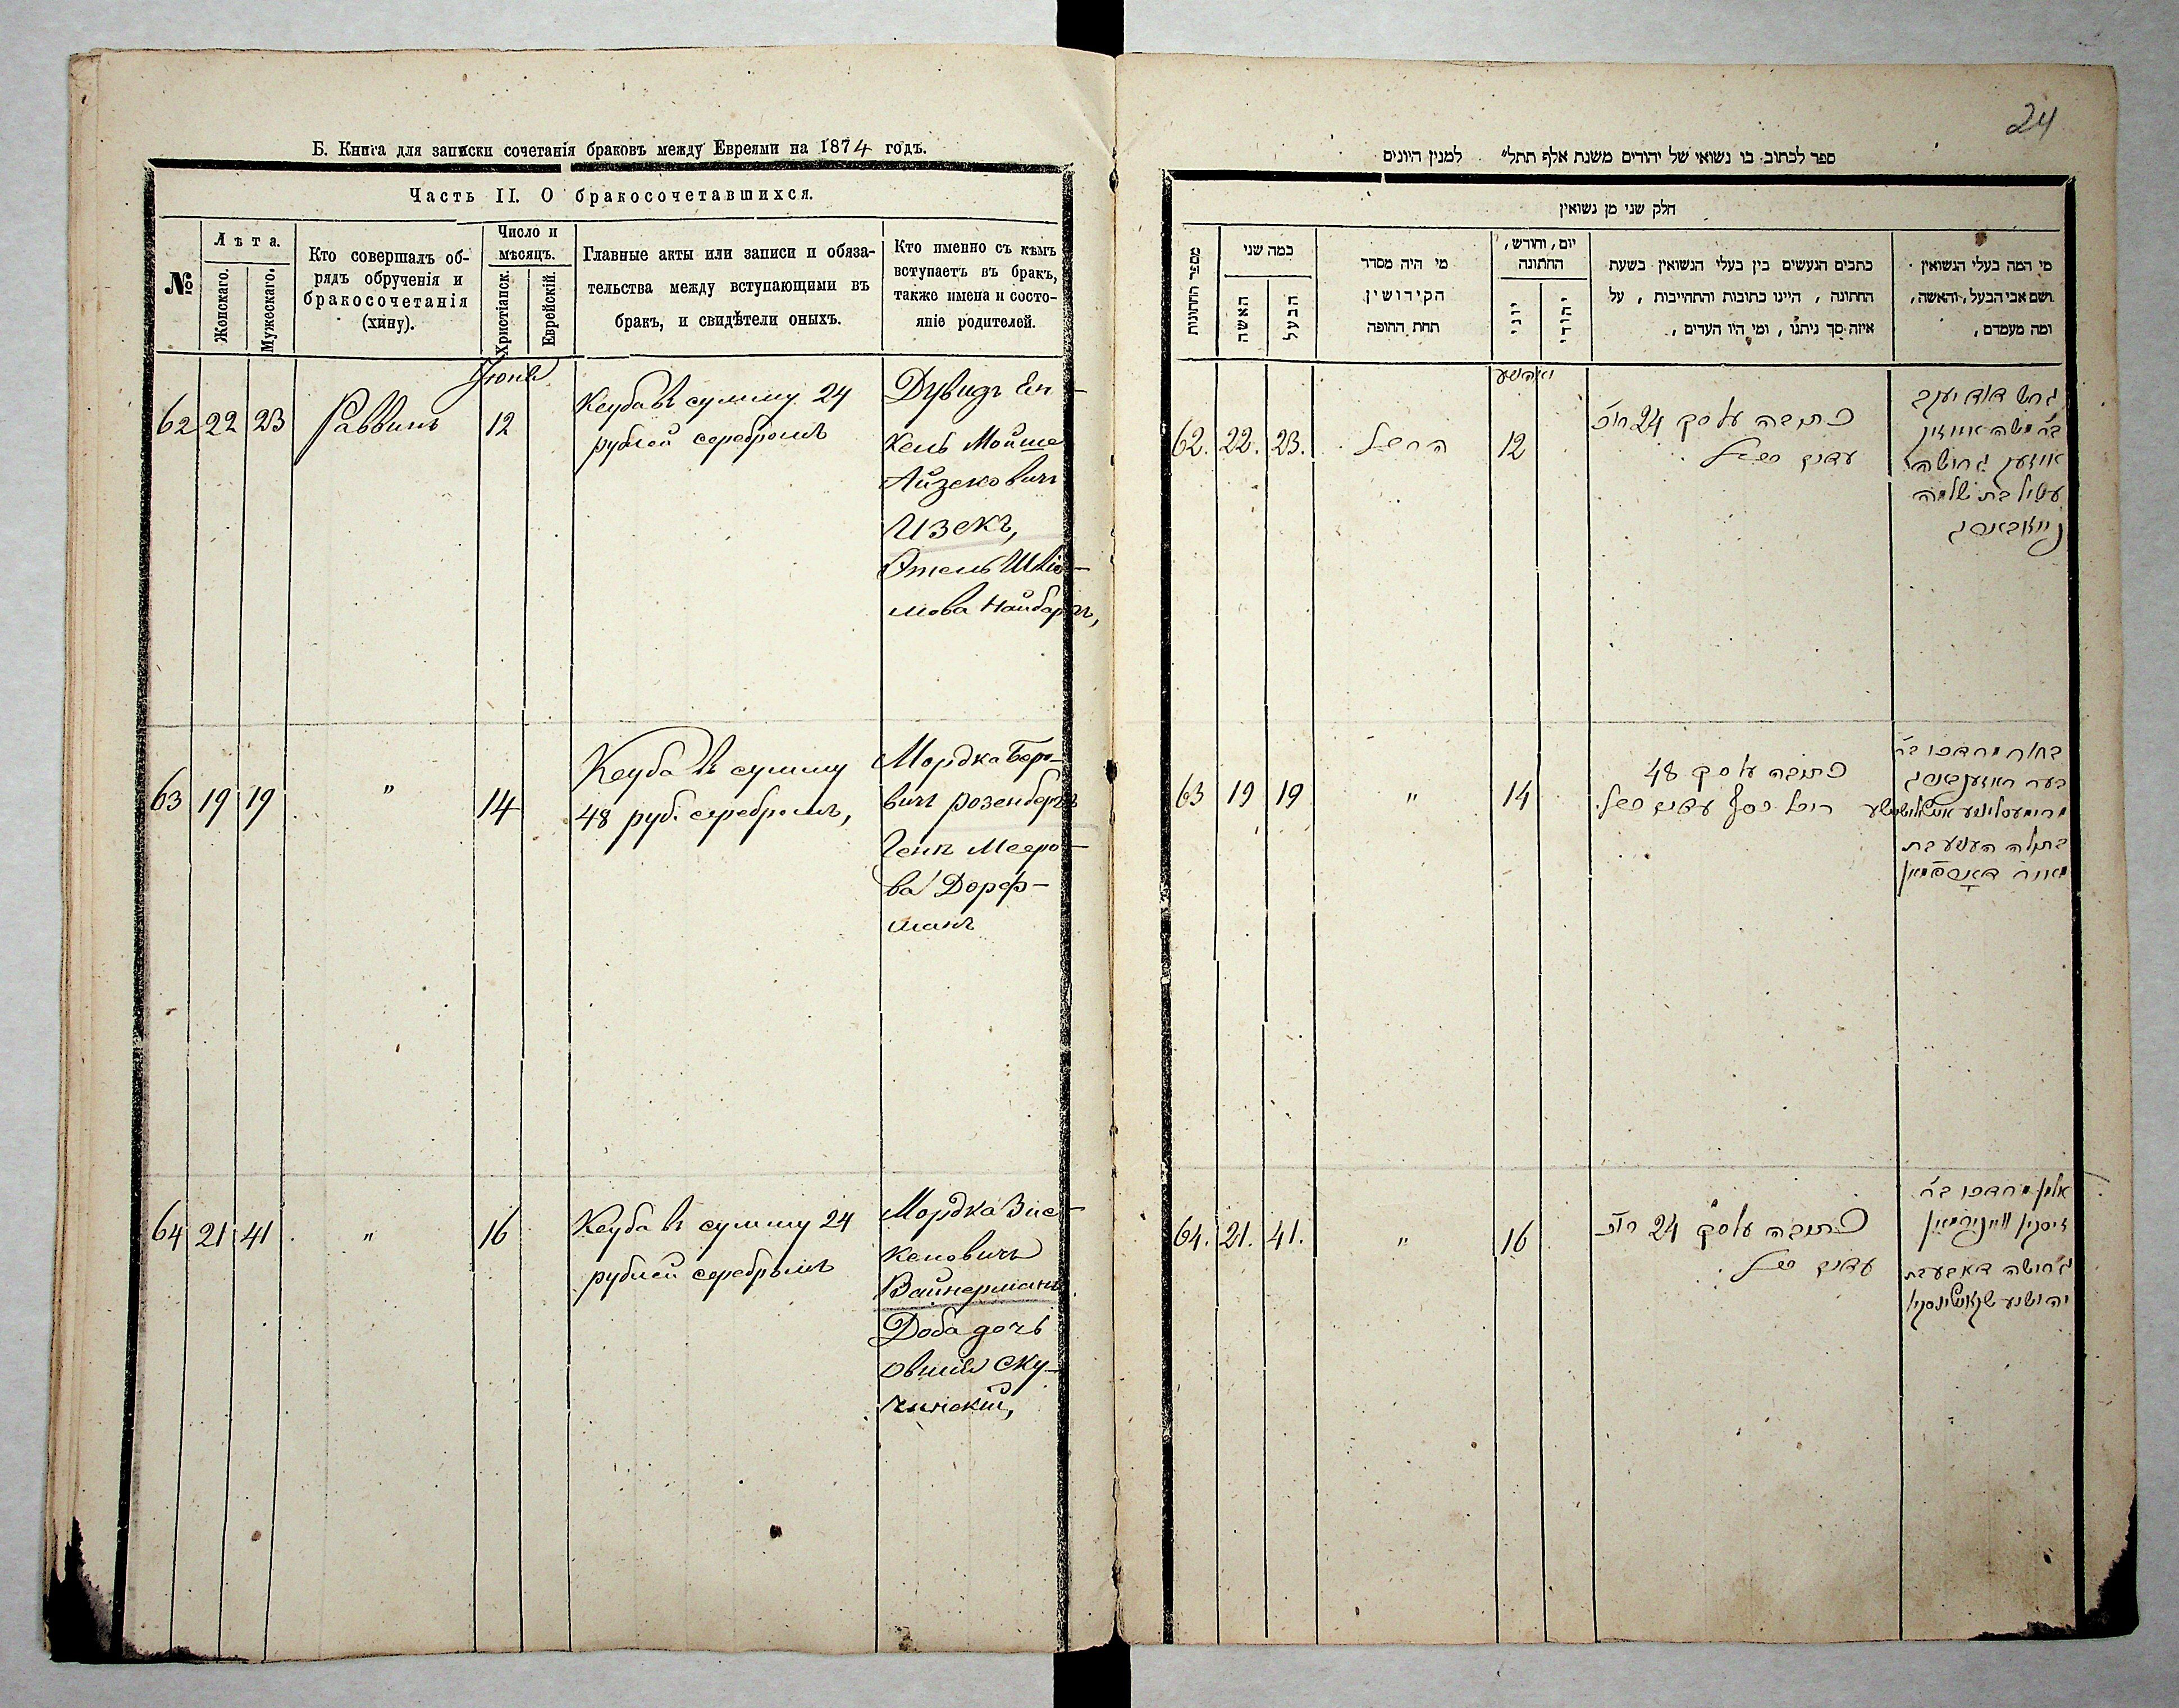 Б. Книга для записки сочетанія браковъ между Евреями на 1874 годъ.
Часть II. О бракосочетавшихся.
№
Лѣта.
Женскаго.
Мужескаго.
Кто совершалъ об-
рядъ обрученія и
бракосочетанія
(хину).
Число и
мѣсяцъ.
Христіанск.
Еврейскій.
Главные акты или записи и обяза-
тельства между вступающими въ
бракъ, и свидѣтели оныхъ.
Кто именно съ кѣмъ
вступаетъ въ бракъ,
также имена и состо-
яніе родителей.
Іюнь
62 22 23 Раввинъ 12
Кеуба въ сумму 24
рублей серебромъ
Дувидъ Ен-
кель Мойше
Айзековичъ
Изекъ,
Этель Шлiо-
мова Найбаргъ,
63 19 19 " 14
Кеуба въ сумму
48 руб. серебромъ,
Мордка Беро-
вичъ Розенбергъ
Геня Мееро-
ва Дорф-
манъ
64 21 41 " 16
Кеуба въ сумму 24
рублей серебромъ
Мордка Зис-
кеновичъ
Вайнерманъ
Доба дочь
Овшія Ску-
линскій,
24
ספר לכתוב בו נשואי של יהודים משנת אלף תתל״ למנין היונים
חלק שני מן נשואין
מספר החתונות
כמה שני
האשה
הבעל
מי היה מסדר
הקידושין
תחת החופה
יום, וחורש,
החתונה
יוני
יהודי
כתבים הנעשים בין בעלי הנשואין בשעת
החתונה, היינו כתובות והתחייבות, על
איזה סך ניתנו, ומי היו העדים,
מי המה בעלי הנשואין
ושם אבי הבעל, והאשה,
ומה מעמדם,
62. 22. 23. 12
כתובה על סך 24 רו״כ
גרוש דוד יענקב
ב״ר משה
גרושה
עטיל בת שלמה
63 19 19 " 14
כתובה על סך 48
רו״כ כסף עדים
בחור מרדכו ב״ר
בער ראזענבערג
בתולה הענע בת
מאיר דארפמאן
64. 21. 41. " 16
כתובה על סך 24 רו״כ
עדים
אלמן מרדכו ב״ר
זיסקין וויינירמאן
גרושה דאבע בת